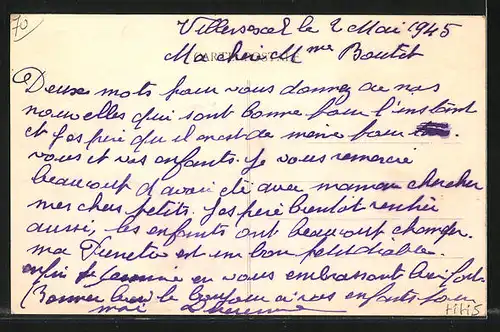 70
Villersexel le 2 Mai 1945
Ma chère Mme Boutet
CARTE POSTALE
Deux mots pour vous donner de nos
nouvelles qui sont bonne pour l'instant
et j'espère qu'il en est de meme pour
vous et vos enfants. Je vous remercie
beaucoup d'avoir été avec maman chercher
mes chers petits. J'espère bientot rentrée
aussi, les enfants ont beaucoup changer.
ma est un bon petit diable.
enfin je termine en vous embrassant bien fort.
(Donner bien le bonjour a vos enfants pour
moi